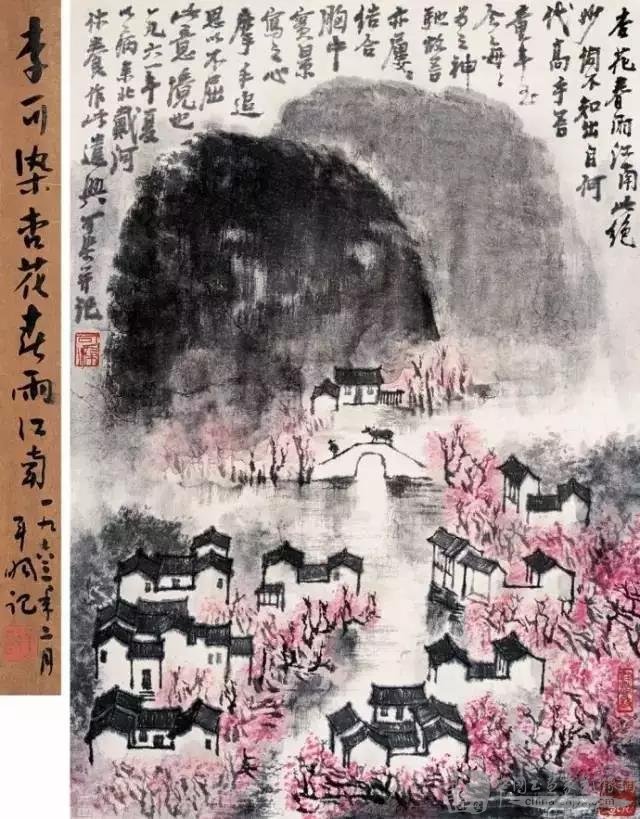 杏花春雨江南此绝
妙词不知出自何
代高手吾
童年至
今每每
为之神
驰故吾
亦屡屡
结合
胸中
实景
写之心
摩手追
思以不屈
此意境也
一九六一年夏
以病来北戴河
休养作此遣兴可染并记
李可染杏花春雨江南
一九六三年三月
记